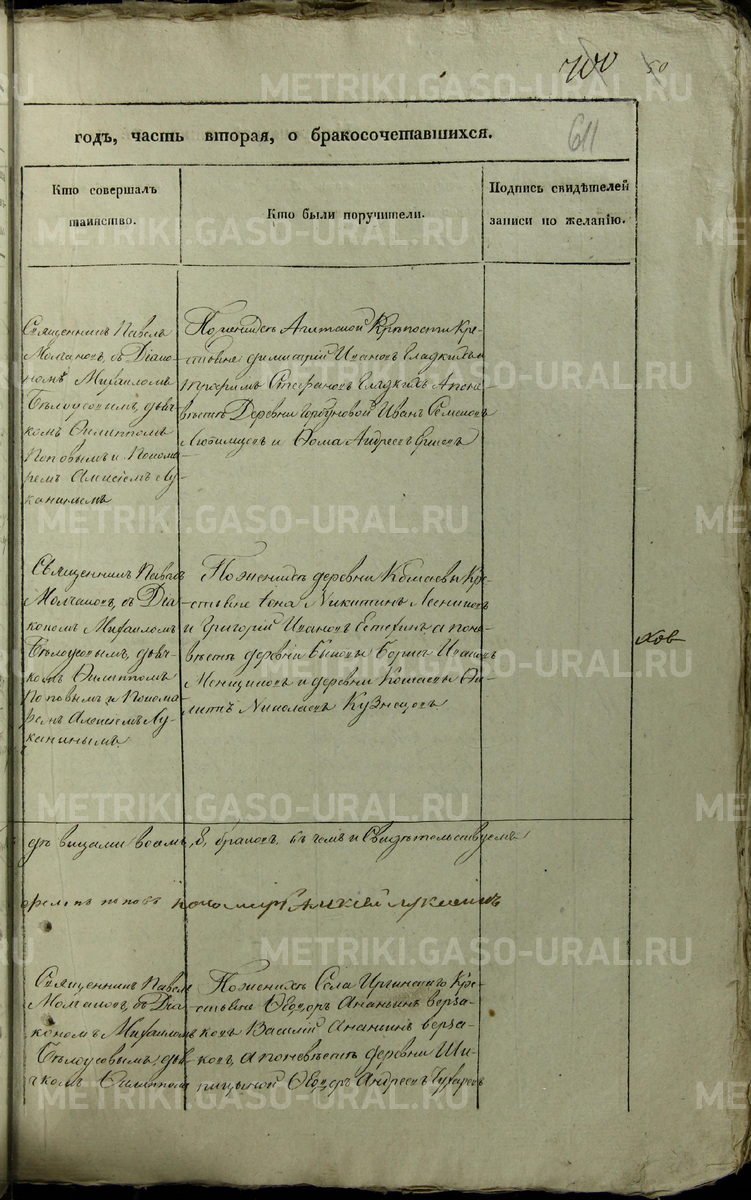 700 50
611
годъ, часть вторая, о бракосочетавшихся.
Кто совершалъ
таинство.
Кто были поручители.
Подпись свидѣтелей
записи по желанію.
Священникъ Павелъ
Молчановъ, съ Діако-
номъ Михаиломъ
Бѣлоусовымъ, дьяч-
комъ Филиппомъ
Поповымъ и Понома-
ремъ Алексіемъ Лу-
канинымъ
По женихѣ Ачитской Крѣпости Кре-
стьяне Димитрій Ивановъ Гладкихъ и
Трофимъ Стефановъ Гладкихъ А по не-
вѣстѣ Деревни Иванъ Семеновъ
и Фома Андреевъ
Священникъ Павелъ
Молчановъ, съ Діа-
кономъ Михаиломъ
Бѣлоусовымъ, дьяч-
комъ Филиппомъ
Поповымъ и Понома-
ремъ Алексіемъ Лу-
канинымъ.
По женихѣ деревни Кре-
стьяне Іона Никитинъ
и Григорій Ивановъ а по не-
вѣстѣ деревни Быковы Борисъ Ивановъ
и деревни Фи-
липпъ Николаевъ Кузнецовъ
ков
дѣвицами восемь, 8, браковъ, въ чемъ и Свидѣтельствуемъ
Филипъ Поповъ Пономарь Алексей Луканинъ
Священникъ Павелъ
Молчановъ, съ Діа-
кономъ Михаиломъ
Бѣлоусовымъ, дья-
чкомъ Филиппом
По женихѣ Села Иргинскаго Кре-
стьяне Ѳеодоръ Ананьинъ Верза-
ковъ Василій Ананьинъ Верза-
ковъ, а по невѣстѣ деревни Ши-
пицыной Ѳеодоръ Андреевъ
METRIKI.GASO-URAL.RU